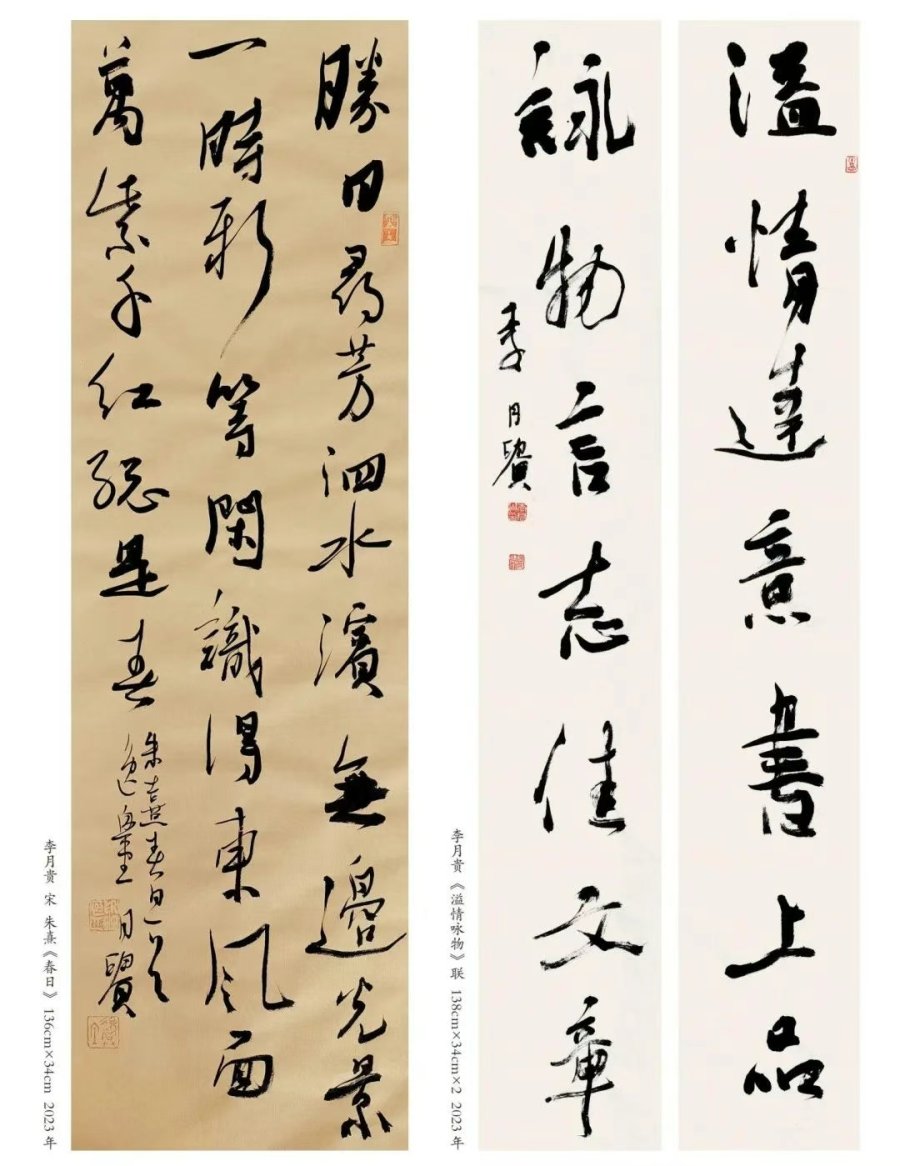 溢情達意書上品
詠物言志佳文章
李月貴
李月貴 《溢情咏物》联 138cm×34cm×2 2023 年
勝日尋芳泗水濱無邊光景
一時新等閑識得東風面
萬紫千紅總是春
朱熹春日
月貴
李月貴 宋 朱熹《春日》 136cm×34cm 2023 年